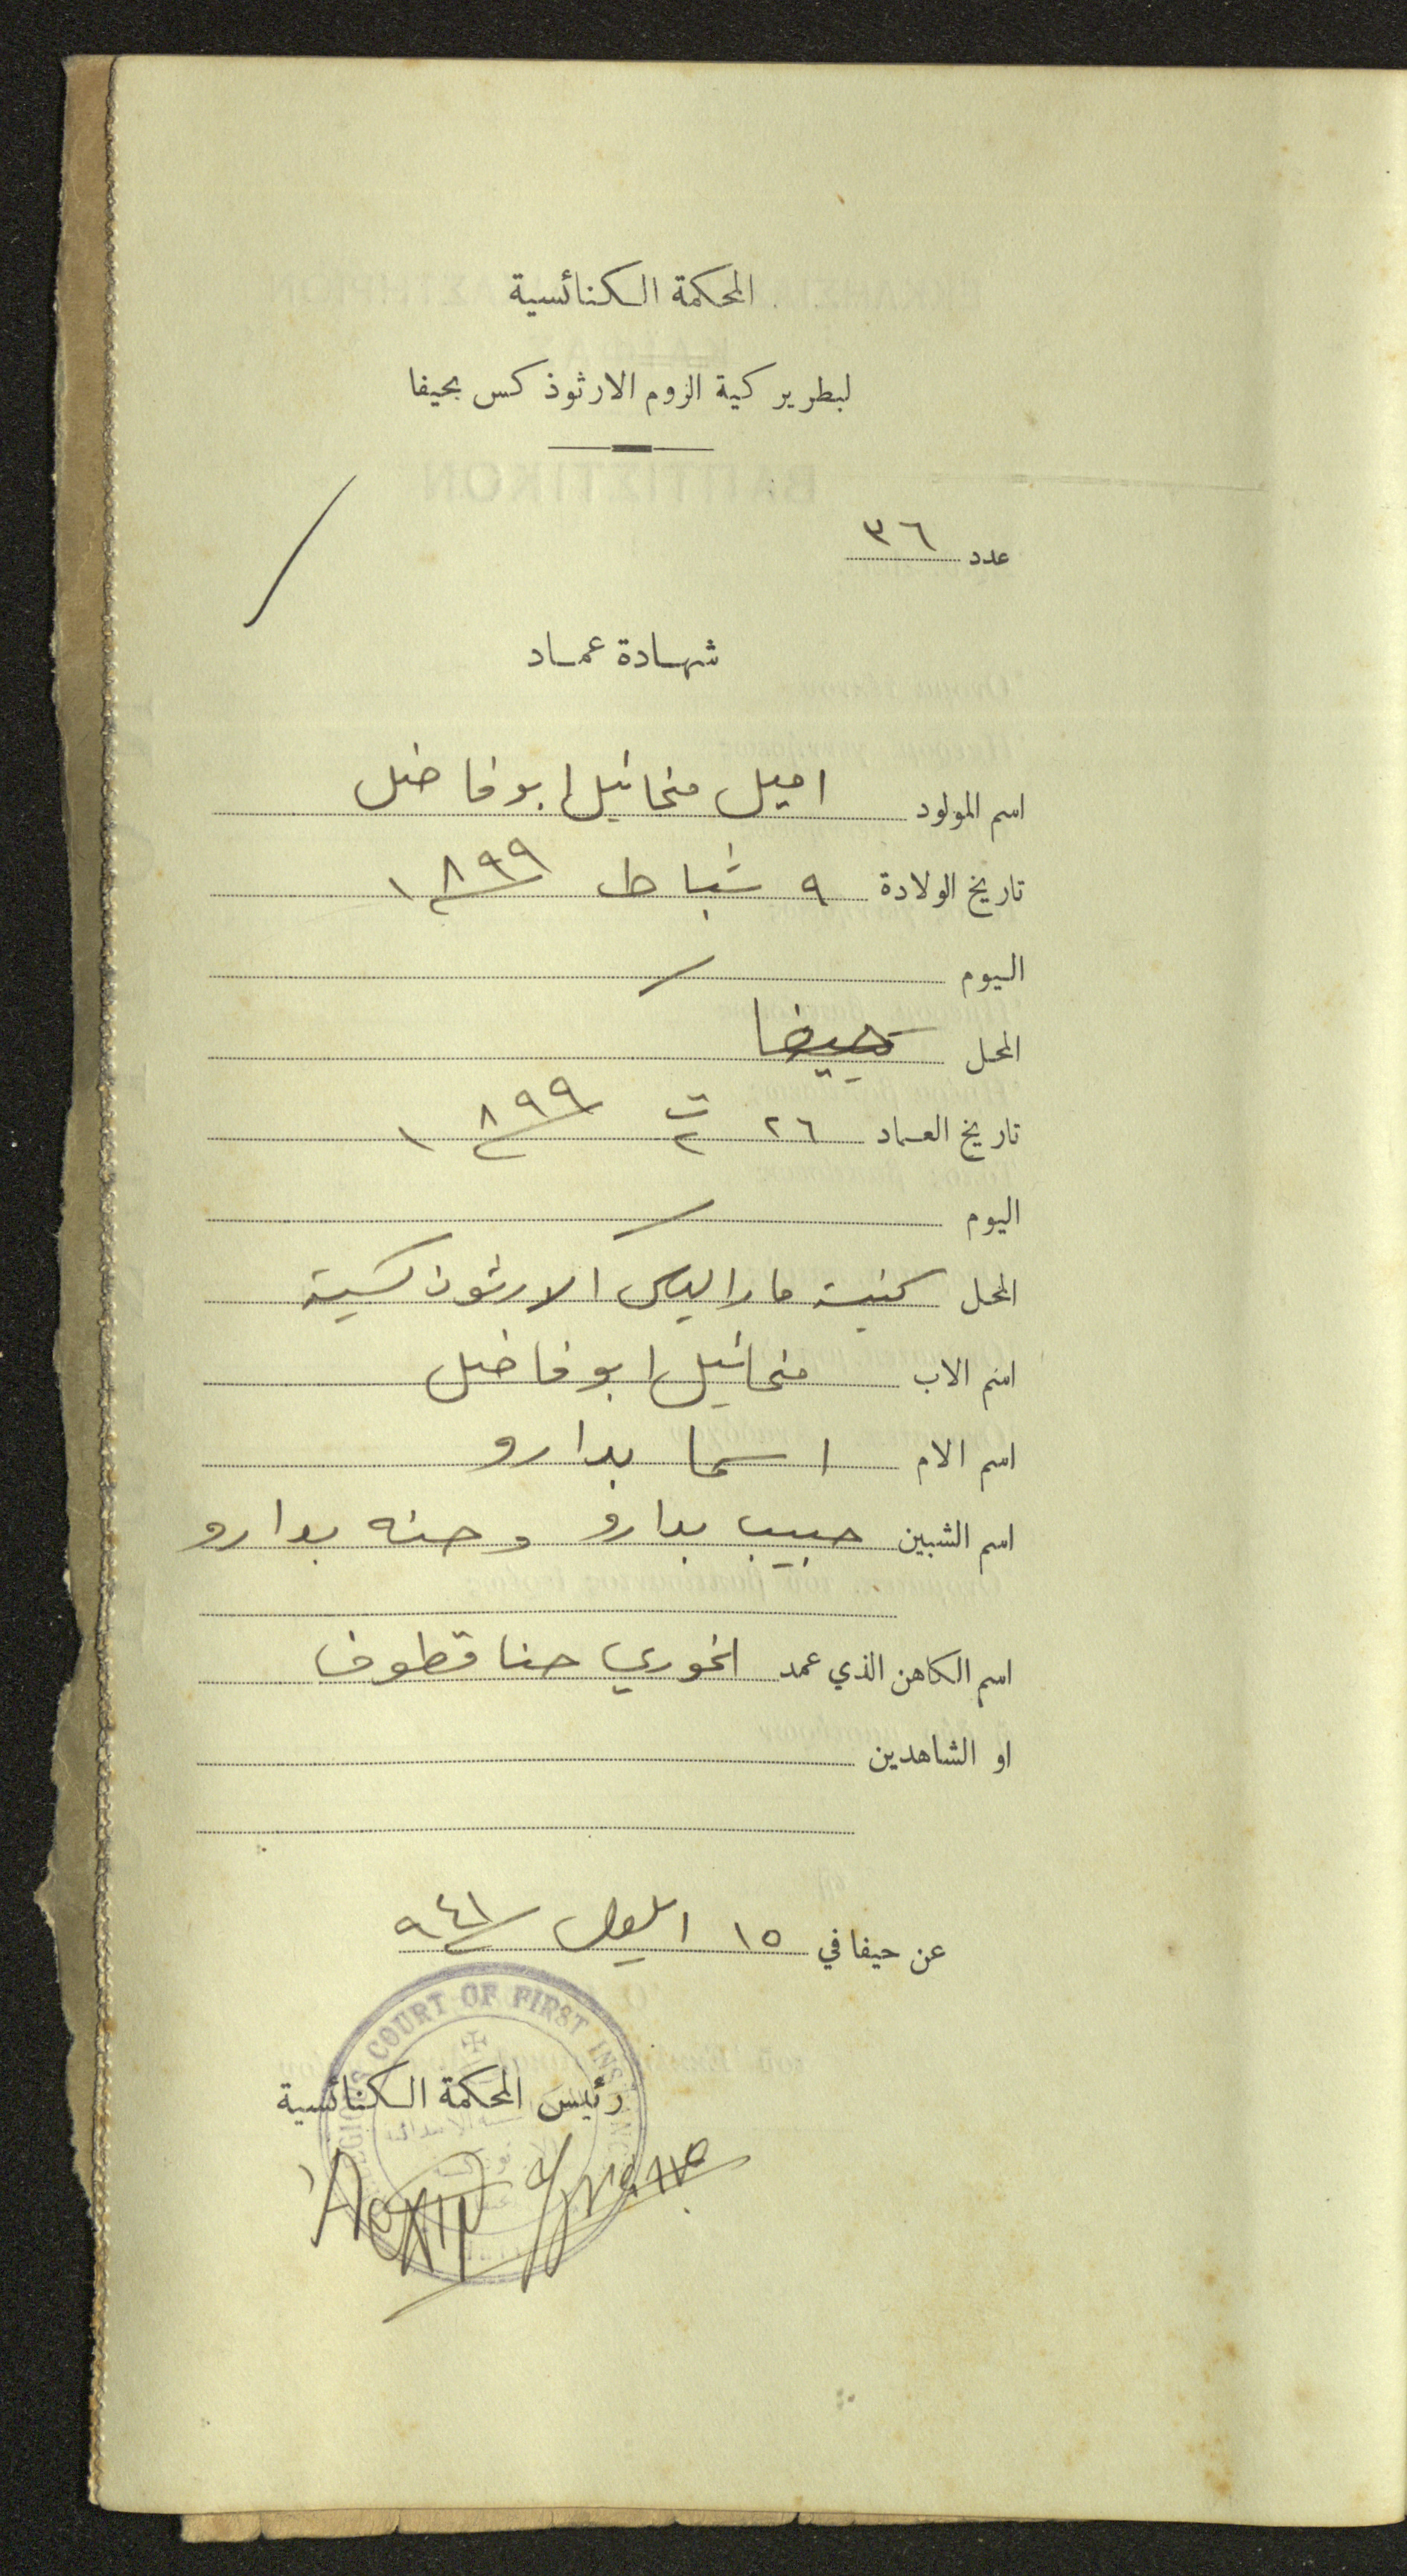 المحكمة الكنائسية
لبطريركية الروم الارثوذكس بحيفا
عدد ٣٦
شهادة عماد
اسم المولود اميل مخائيل ابو فاضل
تاريخ الولادة ٩ شباط ١٨٩٩
اليوم /
المحل حيفا
تاريخ العماد ٢٦ ت٢ ١٨٩٩
اليوم /
المحل كنيسة مار الياس الارثوذكسية
اسم الاب مخائيل ابو فاضل
اسم الام اسما بدارو
اسم الشبين حبيب بدارو وحنه بدارو
اسم الكاهن الذي عمد الخوري حنا قطوف
او الشاهدين
عن حيفا في ١٥ ايلول ٩٤١
COURT OF FIRST INSTANCE
رئيس المحكمة الكنائسية